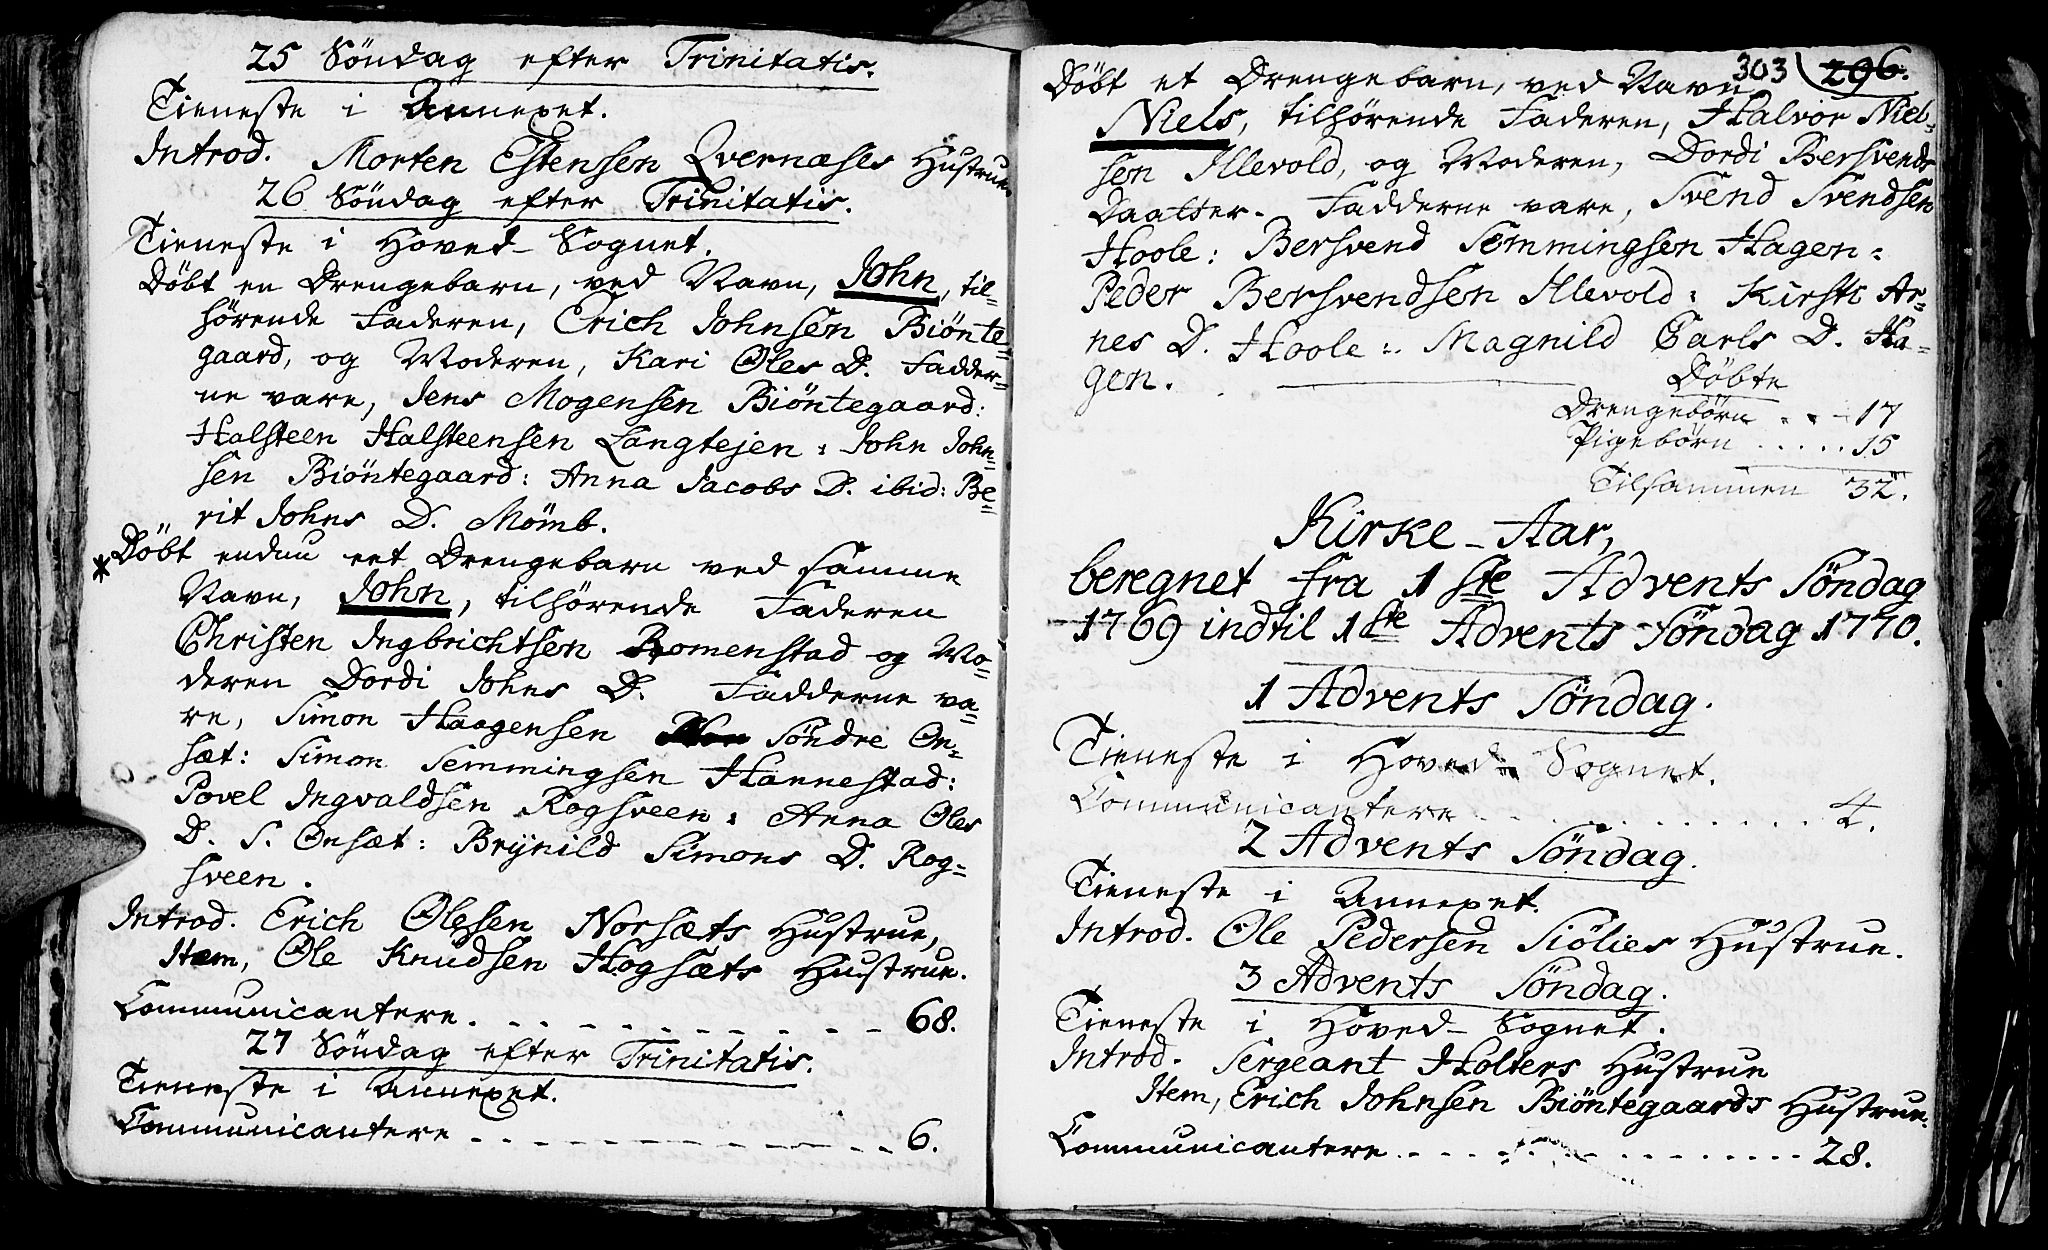 25 Söndag efter Trinitatis.
Tieneste i Annexet.
Introd. Morten Estensen Qvernæses Hustrue
26 Söndag efter Trinitatis.
Tieneste i Hoved-Sognet.
Döbt en Drengebarn, ved Navn, John, til=
hørende Faderen, Erich Johnsen Biönte=
gaard, og Moderen, Kari Oles D. Fadder=
ne vare, Jens Mogensen Biöntegaard:
Halsteen Halsteensen Langtejen: John John=
sen Biöntegaard: Anna Jacobs D. ibid: Be=
rit Johns D. Mömb.
* Döbt endnu eet Drengebarn ved samme
Navn, John, tilhørende Faderen
Christen Ingbrichtsen Romenstad og Mo=
deren Dordi Johns D. Fadderne va=
re, Simon Haagensen Söndre On=
sæt: Simon Semmingsen Hannestad:
Povel Ingvaldsen Rogsveen: Anna Oles
D. S. Onsæt: Brÿnild Simons D. Rog=
sveen.
Introd. Erich Olesen Norsæts Hustrue,
Item, Ole Knudsen Hogsæts Hustrue.
Communicantere. - - - - - - - - - - - 68.
27 Söndag efter Trinitatis.
Tieneste i Annexet.
Communicantere - - - - - - - - - - - 6.
303 296.
Döbt et Drengebarn, ved Navn
Niels, tilhørende Faderen, Halvor Niel=
sen Illevold, og Moderen, Dordi Bersvends
Daatter. Fadderne vare, Svend Svendsen
Hoole: Bersvend Semmingsen Hagen:
Peder Bersvendsen Illevold: Kirsti Ar=
nes D. Hoole: Magnild Carls D. Ha=
gen.
Döbte
Drengebörn . . . 17
Pigebörn . . . . . 15
Tilsammen 32.
Kirke-Aar,
beregnet fra 1ste Advents Söndag
1769 indtil 1ste Advents Söndag 1770.
1 Advents Söndag.
Tieneste i Hoved-Sognet.
Communicantere . . . . . . . . . . . 4.
2 Advents Söndag.
Tieneste i Annexet.
Introd. Ole Pedersen Siölies Hustrue.
3 Advents Söndag.
Tieneste i Hoved-Sognet.
Introd. Sergeant Holters Hustrue
Item, Erich Johnsen Biöntegaards Hustrue.
Communicantere. - - - - - - - - - - - 28.